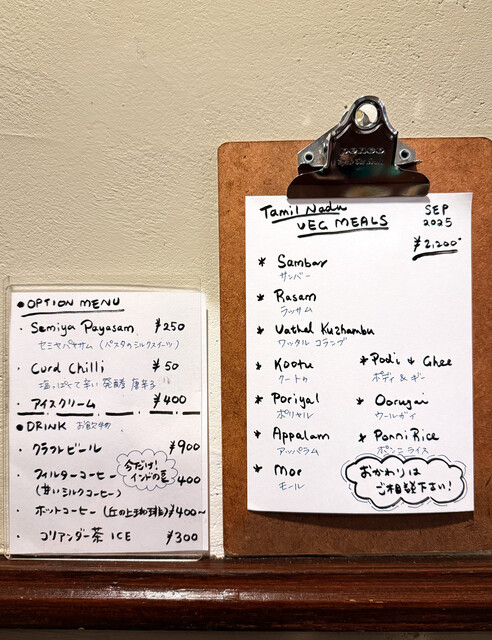 ● OPTION MENU
・ Semiya Payasam ¥250
セミヤパヤサム (パスタのシルクスイーツ)
・ Curd Chilli ¥50
塩っぱくて辛い 発酵 唐辛子
・ アイスクリーム ¥400
● DRINK お飲物
・ クラフトビール ¥900
今だけ!
インドの豆
・ フィルターコーヒー 400
(甘いシルクコーヒー)
・ ホットコーヒー (丘の上珈琲) ¥400〜
・ コリアンダー茶 ICE ¥300
Tamil Nadu
VEG MEALS
SEP
2025
¥2,200-
* Sambar
サンバー
* Rasam
ラッサム
* Vathal Kuzhambu
ワッタル コランブ
* Kootu
クートゥ
* Poriyal
ポリヤル
* Appalam
アッパラム
* Mor
モール
* Podi & Ghee
ポディ & ギー
* Oorugai
ウールガイ
* Ponni Rice
ポンニライス
おかわりは
ご相談下さい!